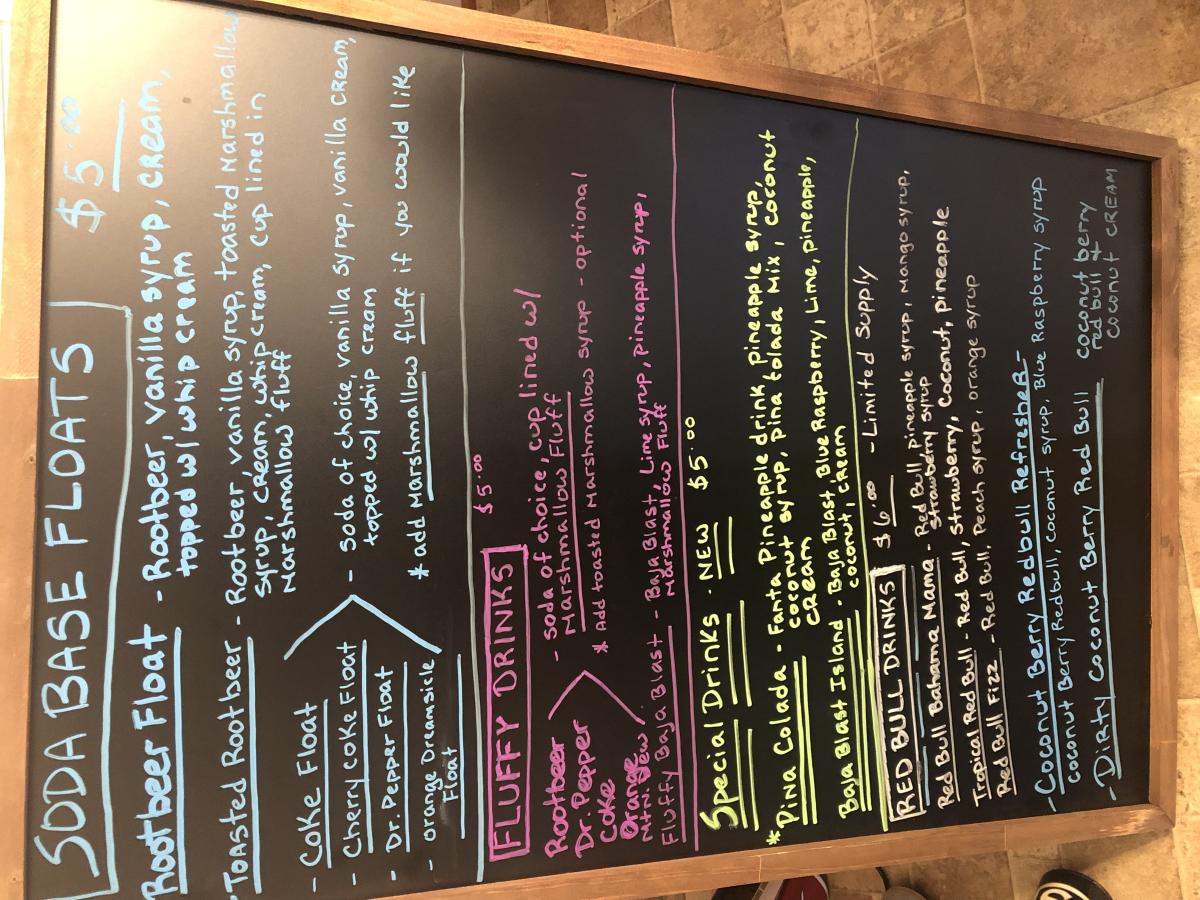 SODA BASE FLOATS $5.00
Rootbeer Float - Rootbeer, vanilla syrup, cream,
topped w/ whip cream
-Toasted Rootbeer - Rootbeer, vanilla syrup, toasted Marshmallow
syrup, cream, whip cream, cup lined in
Marshmallow fluff
- Coke Float
- Cherry Coke Float - soda of choice, vanilla syrup, vanilla cream,
- Dr. Pepper Float topped w/ whip cream
- orange Dreamsicle * add Marshmallow fluff if you would like
Float
FLUFFY DRINKS $5.00
Rootbeer - soda of choice, cup lined w/
Dr. Pepper Marshmallow Fluff
Coke * Add toasted Marshmallow syrup - optional
Orange
Mtn. Dew
Fluffy Baja Blast - Baja Blast, Lime syrup, pineapple syrup,
Marshmallow Fluff
Special Drinks . NEW $5.00
* Pina Colada - Fanta Pineapple drink, pineapple syrup,
coconut syrup, pina colada Mix, coconut
cream
Baja Blast Island - Baja Blast, Blue Raspberry, Lime, pineapple,
coconut, cream
RED BULL DRINKS $6.00 - Limited Supply
Red Bull Bahama Mama - Red Bull, pineapple syrup, mango syrup,
strawberry syrup
Tropical Red Bull - Red Bull, strawberry, coconut, pineapple
Red Bull Fizz - Red Bull, Peach syrup, orange syrup
- Coconut Berry Redbull Refresher -
coconut Berry Redbull, coconut syrup, Blue Raspberry syrup
- Dirty Coconut Berry Red Bull coconut berry
red bull +
coconut CREAM